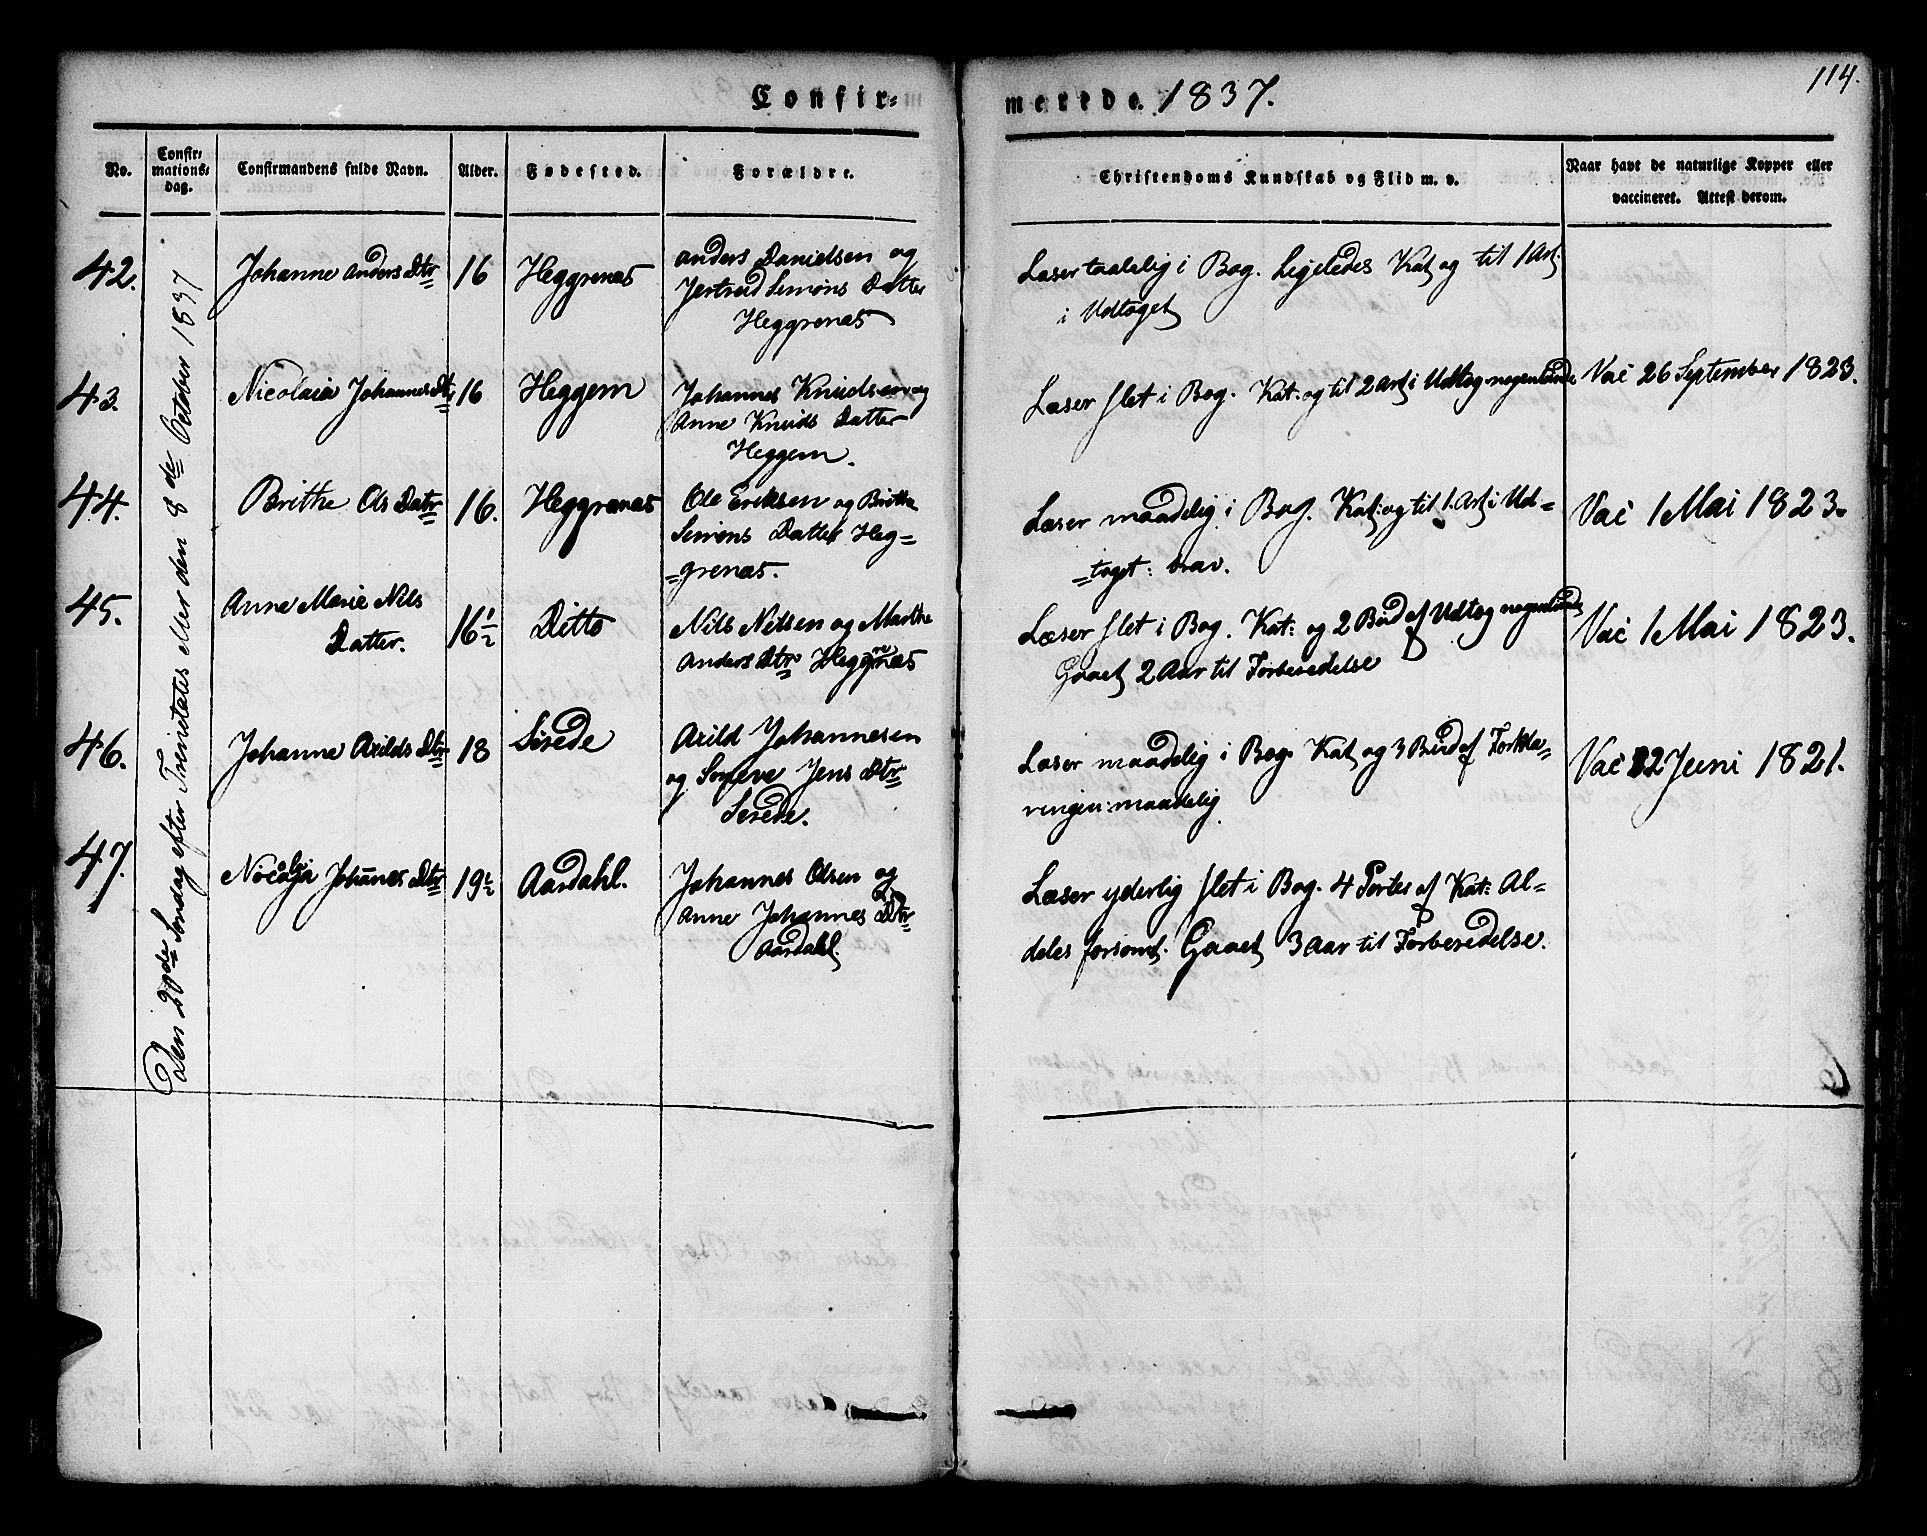 114.
Confir-
merede. 1837.
No.
Confir-
mations-
dag.
Confirmandens fulde Navn.
Alder.
Fødested.
Forældre.
Christendoms Kundskab og Flid m. v.
Naar havt de naturlige Kopper eller
vaccineret. Attest derom.
Den 20de Sondag efter Trenetatis eller den 8de Octeber 1837
42.
Johanne Anders Dtr
16
Heggrenæs
Anders Danielsen og
Jertrud Simons Datter
Heggrenæs
Læser taalelig i Bog. Ligeledes Kat og til 1 Art.
i Udtoget
43.
Nicolaia Johannes Dtr
16
Heggem
Johannes Knudsen og
Anne Knuds Datter
Heggem.
Læser slet i Bog. Kat: og til 2 Art i Udtog nogenlunde
Vac 26 September 1823.
44.
Brithe Ols Datr
16.
Heggrenæs
Ole Eriksen og Brithe
Simons Datter Heg=
=grenæs.
Læser maadelig i Bog. Kat: og til 1. Art i Ud=
=toget: brav.
Vac 1 Mai 1823.
45.
Anne Marie Nils
Datter.
16½
Ditto
Nils Nilsen og Marthe
Anders Dtr Heggrenæs
Læser slet i Bog. Kat: og 2 Bud af Udtog nogenlunde
Gaaet 2 Aar til Forberedelse
Vac 1 Mai 1823.
46.
Johanne Arilds Dtr
18
Serede
Arild Johannesen
og Synneve Jens Dtr
Serede.
Læser maadelig i Bog. Kat og 3 Bud af Forkla=
ringen: maadelig
Vac 22 Juni 1821.
47.
Nicolaia Johannes Dtr
19½
Aardahl.
Johannes Olsen og
Anne Johannes Dtr
Aardahl.
Læser yderlig slet i Bog. 4 Parter af Kat: Al=
deles forsomt. Gaaet 3 Aar til Forberedelse.